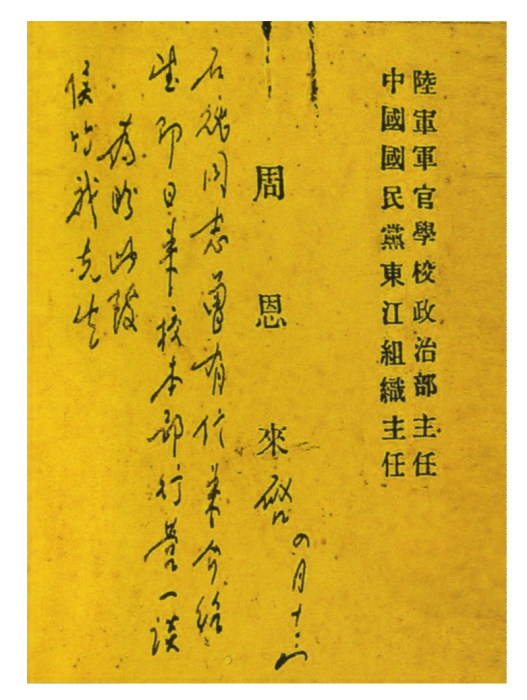 陸軍軍官學校政治部主任
中國國民黨東江組織主任
周恩來啓 四月十
石魂同志曾有信来介绍
即日来校本部行营一谈
为盼此致
侯竹我先生